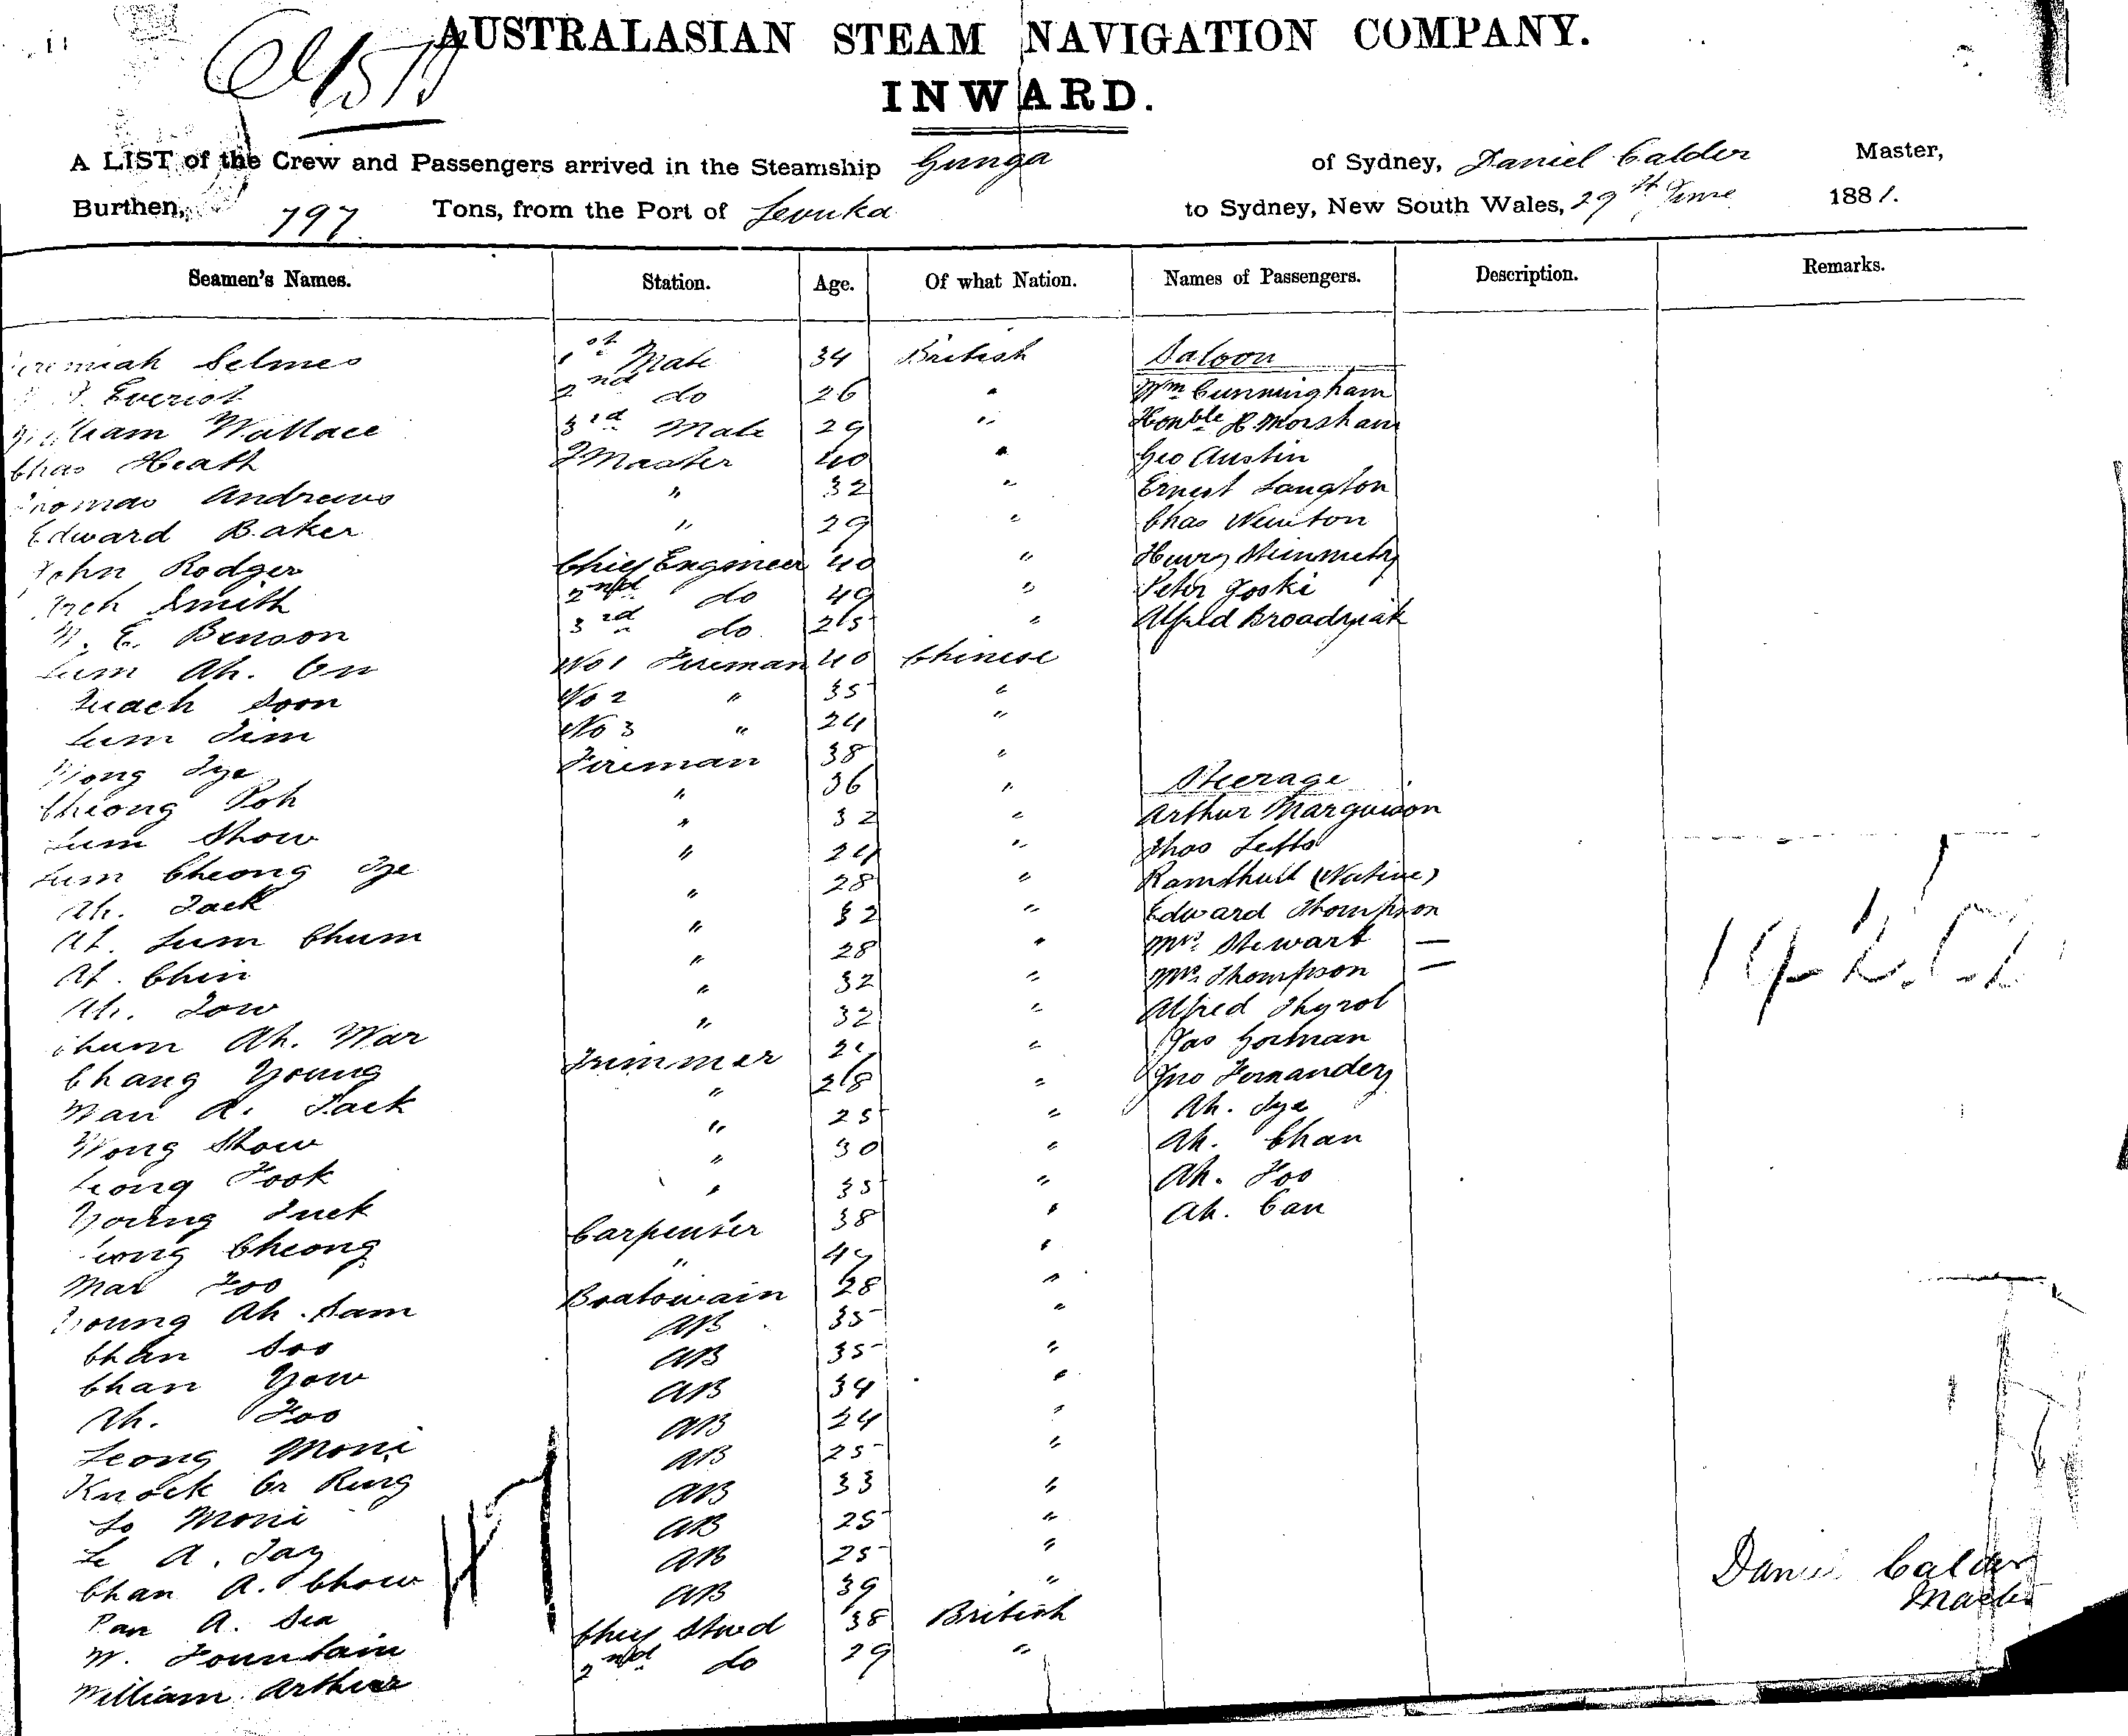 AUSTRALASIAN STEAM NAVIGATION COMPANY.
INWARD.
A LIST of the Crew and Passengers arrived in the Steamship Gunga of Sydney, Daniel Calder Master,
Burthen, 797 Tons, from the Port of Levuka to Sydney, New South Wales, 29th June 1881.
Seamen's Names. Station. Age. Of what Nation. Names of Passengers. Description. Remarks.
Selmes 1st Mate 34 British Saloon
Everist 2nd do 26 " Wm Cunningham
William Wallace 3rd Mate 29 " Honble R. Morsham
Chas Heath Master 40 " Geo Austin
Thomas Andrews " 32 " Ernest Langton
Edward Baker " 29 " Chas Newton
John Rodger Chief Engineer 40 " Henry
Arch Smith 2nd do 49 " Peter
E. Benson 3rd do 25 " Alfred
Lum Ah. On No 1 Fireman 40 Chinese
Soon No 2 " 35 "
Lum Tim No 3 " 24 "
Tye Fireman 38 "
Cheong Poh " 36 " Steerage
Lum Show " 32 " Arthur
Lum Cheong Tye " 24 " Thos
Ah. Jack " 28 " (Native)
Ah. Lum Chum " 32 " Edward Thompson
Ah. Chin " 28 " Mrs Stewart —
Ah. Tow " 32 " Mrs Thompson —
Chum Ah. War " 32 " Alfred
Chang Young Trimmer " Jas Gorman
Wan A. Jack " 28 " Jno Fernandez
Wong Show " 25 " Ah. Tye
Leong Fook " 30 " Ah. Chan
Young Tuck " 35 " Ah. Foo
Cheong Carpenter 38 " Ah. Can
Mar Foo " 49 "
Young Ah. Sam Boatswain 28 "
Chan Soo AB 35 "
Chan Yow AB 35 "
Ah. Foo AB 34 "
Leong Moni AB 24 "
Knock AB 25 "
Lo Moni AB 33 "
Le A. Tay AB 25 "
Chan A. Chow AB 25 "
Pan A. Sea AB 39 "
W. Fountain Chief Stwd 38 British
William Arthur 2nd do 29 "
47
Daniel Calder
Master